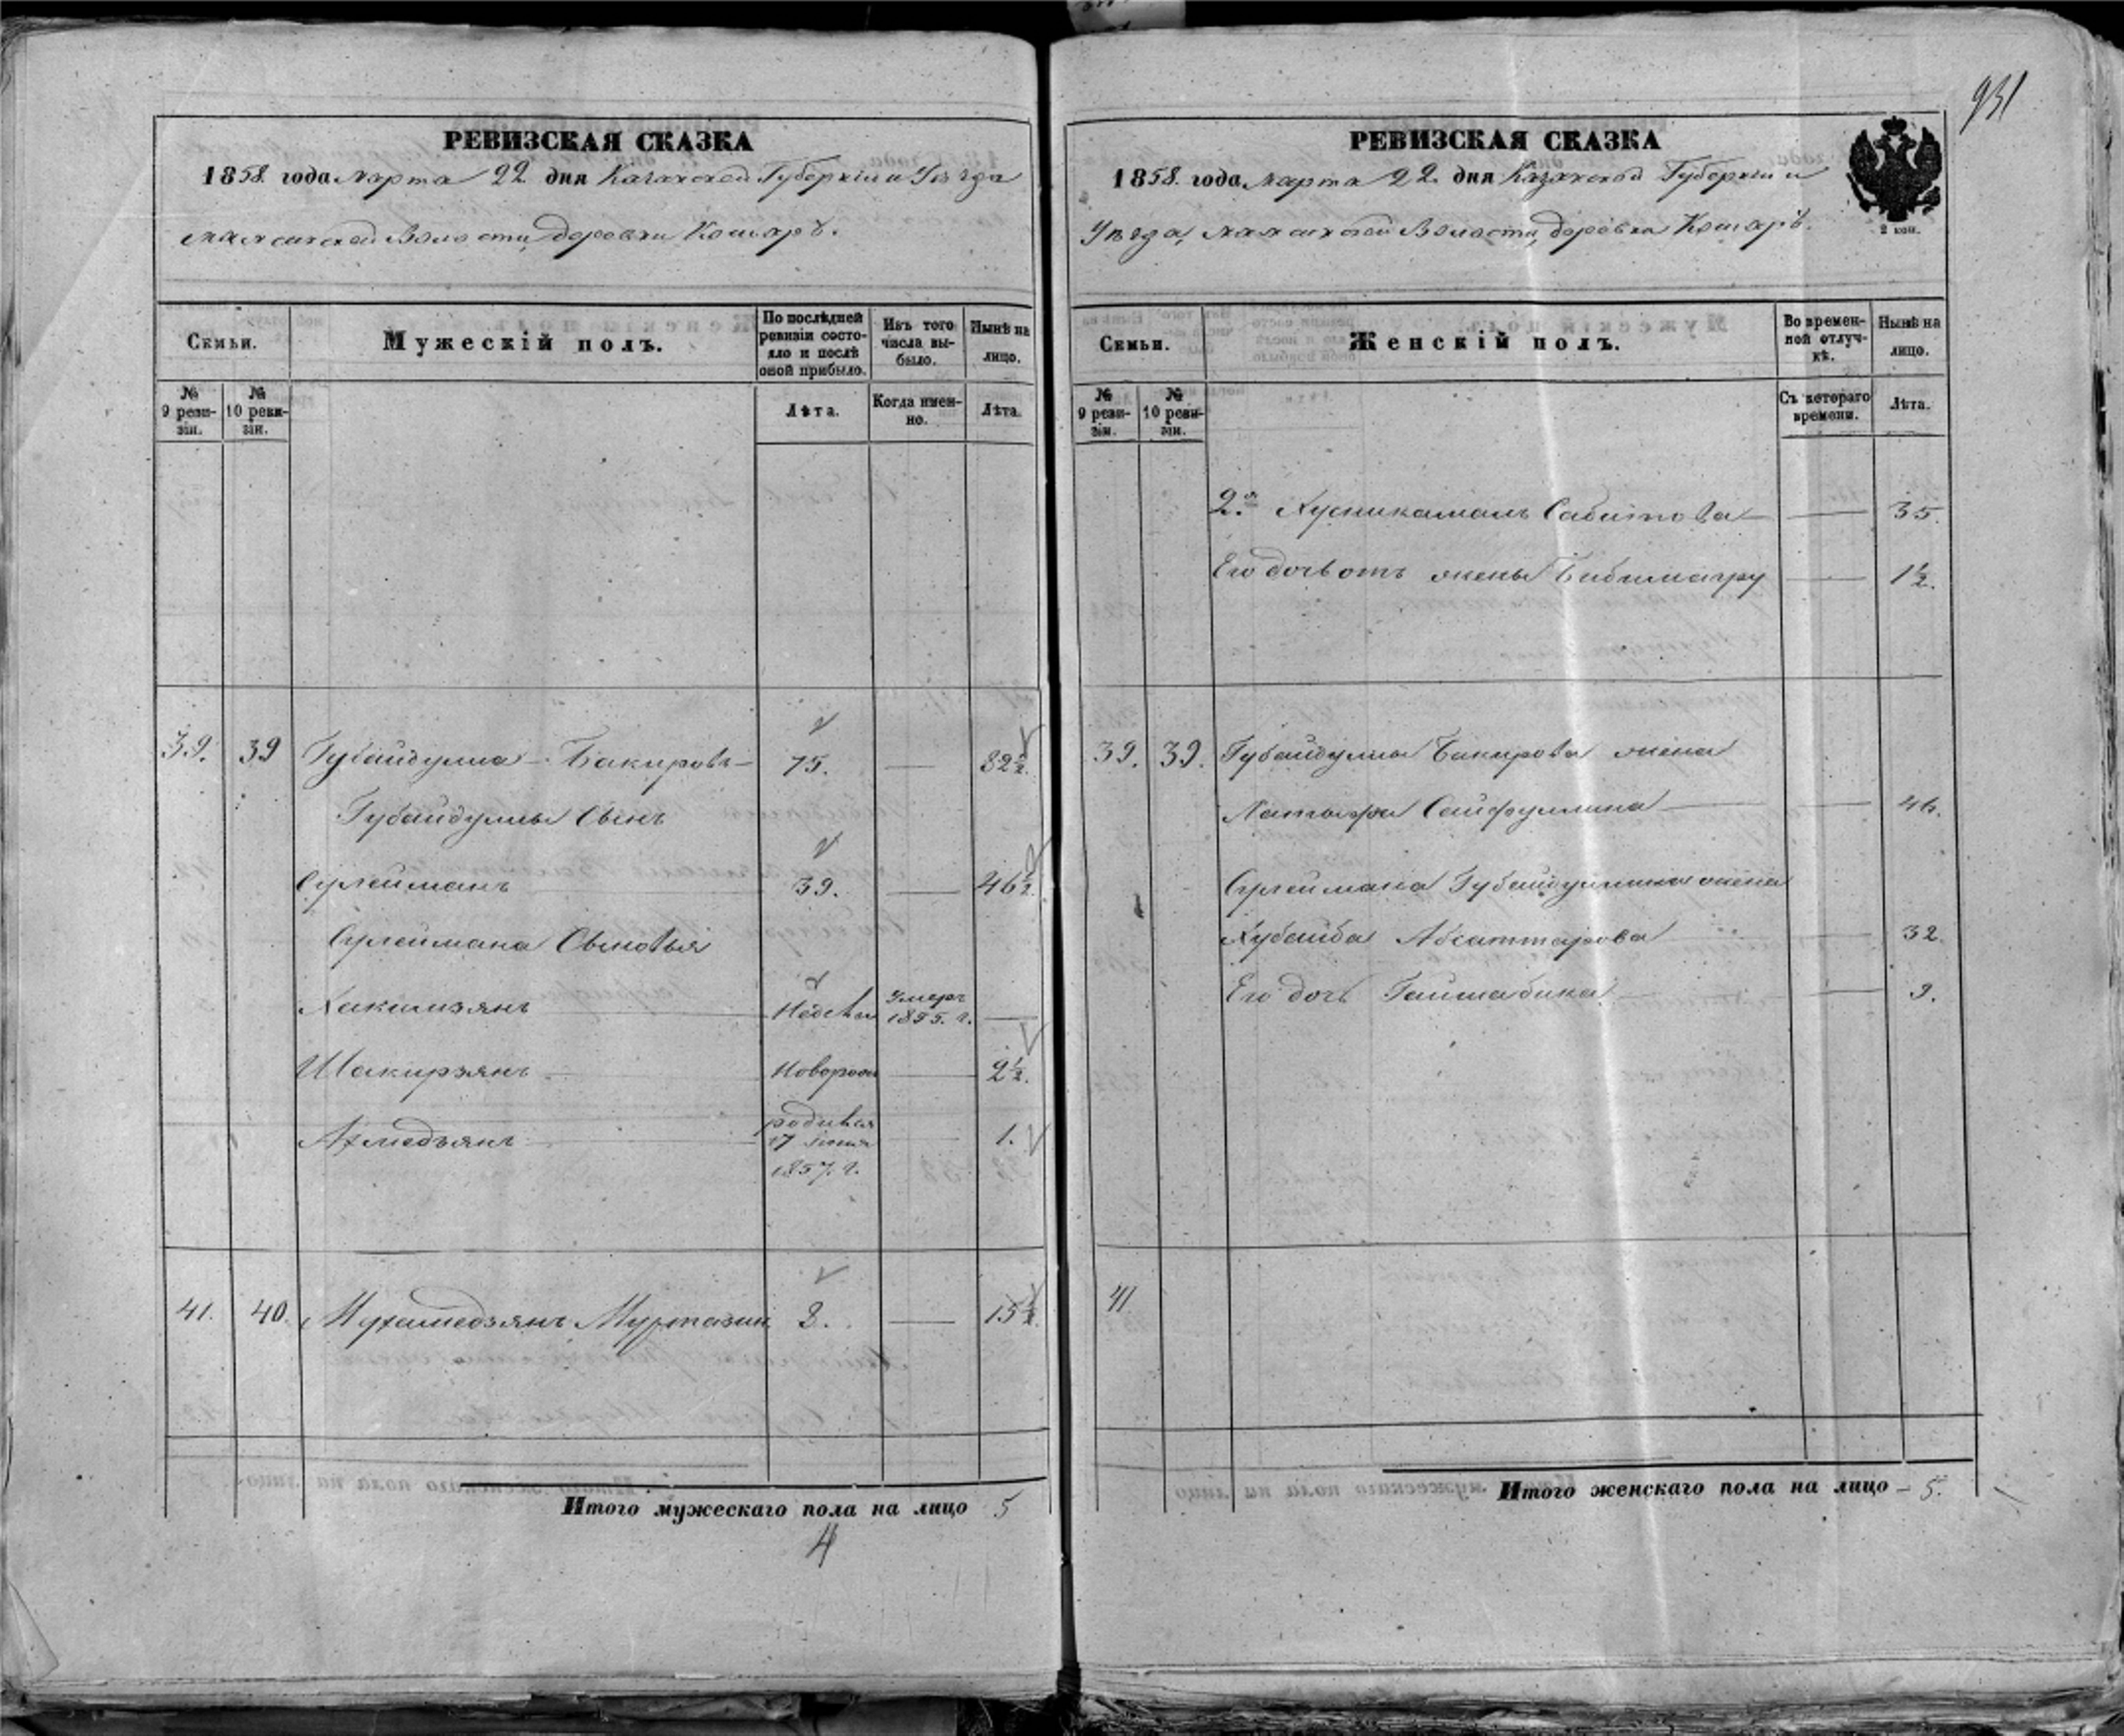 931
РЕВИЗСКАЯ СКАЗКА
1858. года Марта 22 дня Казанской Губернии и Уезда
волости деревни Кошарь.
Семьи.
Мужескій полъ.
По послѣдней ревизіи состояло и послѣ оной прибыло.
Изъ того числа выбыло.
Нынѣ на лицо.
№ 9 ревизіи.
№ 10 ревизіи.
Лѣта.
Когда именно.
Лѣта.
39. 39 Губайдулла Бакировъ 75. 82½.
Губайдуллы Сынъ
Сулейманъ 39. 46½.
Сулеймана Сыновья
Хакимзянъ Умеръ 1855. г.
Шакирзянъ Новорож 2½.
Ахмедзянъ родился 17 1857. г. 1.
41. 40. Мухамедзянъ Муртазин 8. 15½.
Итого мужескаго пола на лицо 5
4
РЕВИЗСКАЯ СКАЗКА
1858. года Марта 22 дня Казанской Губернии и
Уезда, волости, деревни Кошарь.
2 коп.
Семьи.
Женскій полъ.
Во временной отлучкѣ.
Нынѣ на лицо.
№ 9 ревизіи.
№ 10 ревизіи.
Съ котораго времени.
Лѣта.
2я Хусникамалъ Сабитова 35.
Его дочь отъ жены 1½.
39. 39. Губайдуллы Бакирова жена
Сайфуллина 46.
Сулеймана Губайдуллина жена
Хубайба Абсаттарова 32.
Его дочь 9.
41
Итого женскаго пола на лицо - 5.